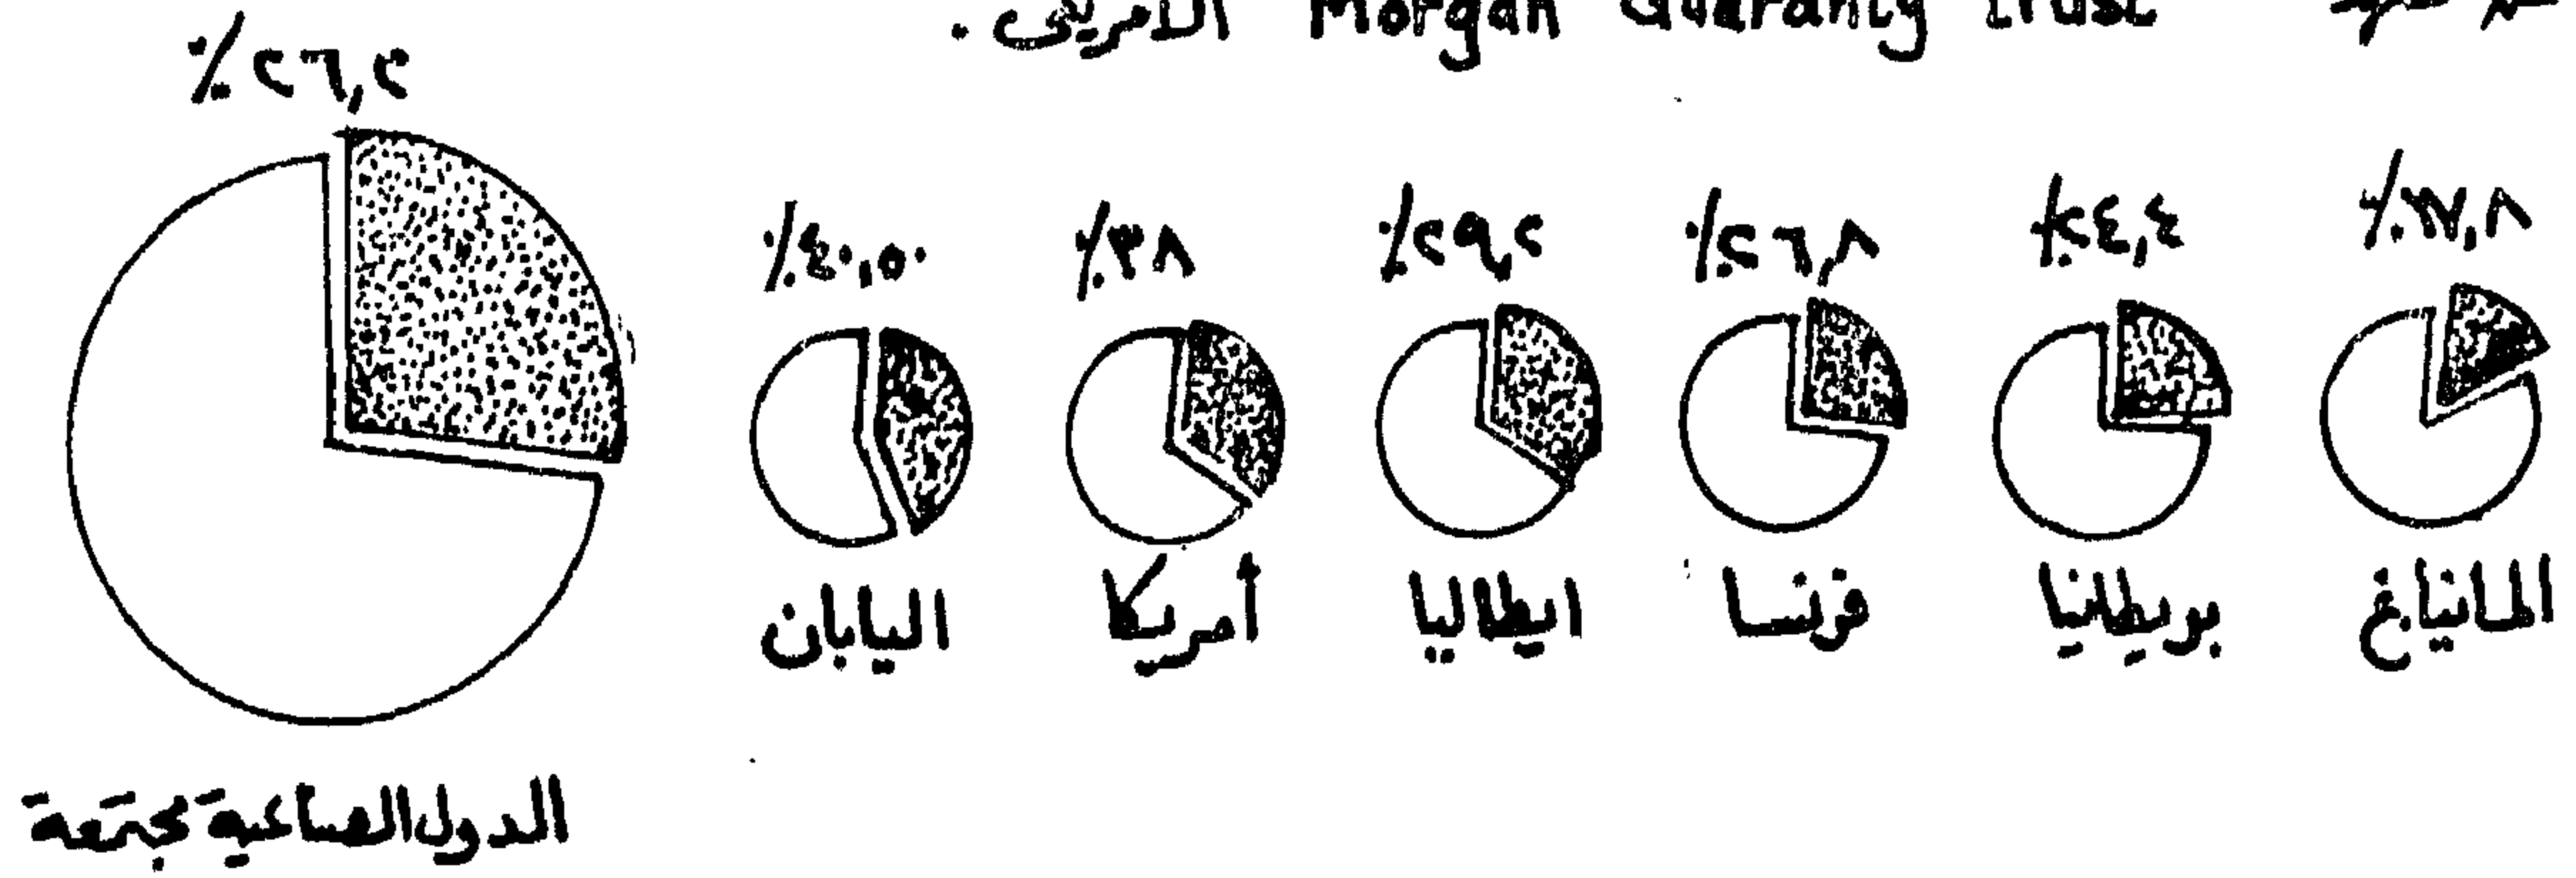 Morgan Guaranty trust الامريكى .
٢٤,٤٪ ٢٦,٨٪ ٢٩,٢٪ ٣٨٪ ٤٠,٥٠٪
٢٦,٢٪
المانيا.غ بريطانيا فرنسا ايطاليا أمريكا اليابان
الدول الصناعية مجتمعة